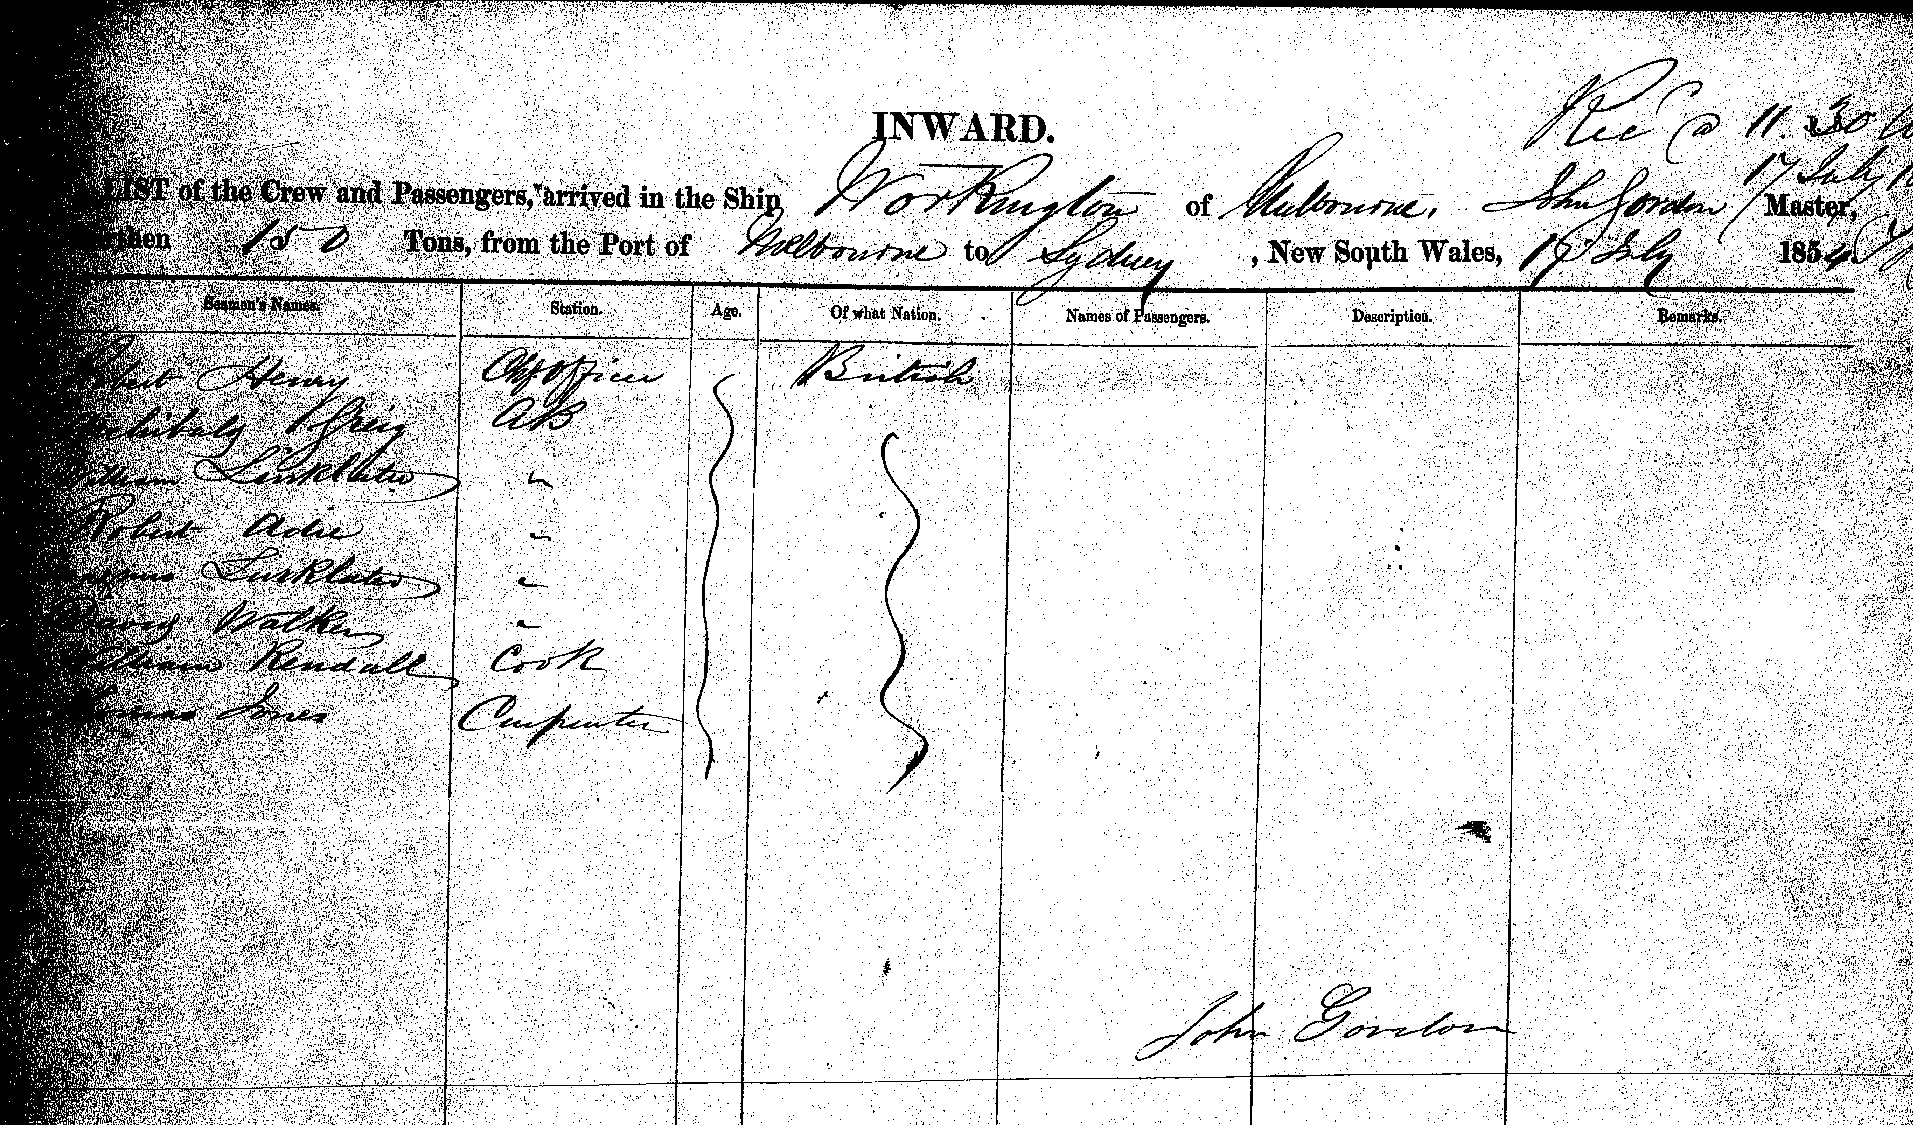 INWARD.
Rec @ 11.30
17 July
LIST of the Crew and Passengers, arrived in the Ship Workington of Melbourne, John Gordon Master,
then 150 Tons, from the Port of Melbourne to Sydney, New South Wales, 17 July 1854
Seamen's Names. Station. Age. Of what Nation. Names of Passengers. Description. Remarks.
Robert Henry Chf Officer British
Archibald Greig AB
William Linklater "
Robert Adie "
Magnus Linklater "
Walker "
William Kendall Cook
Thomas Jones Carpenter
John Gordon